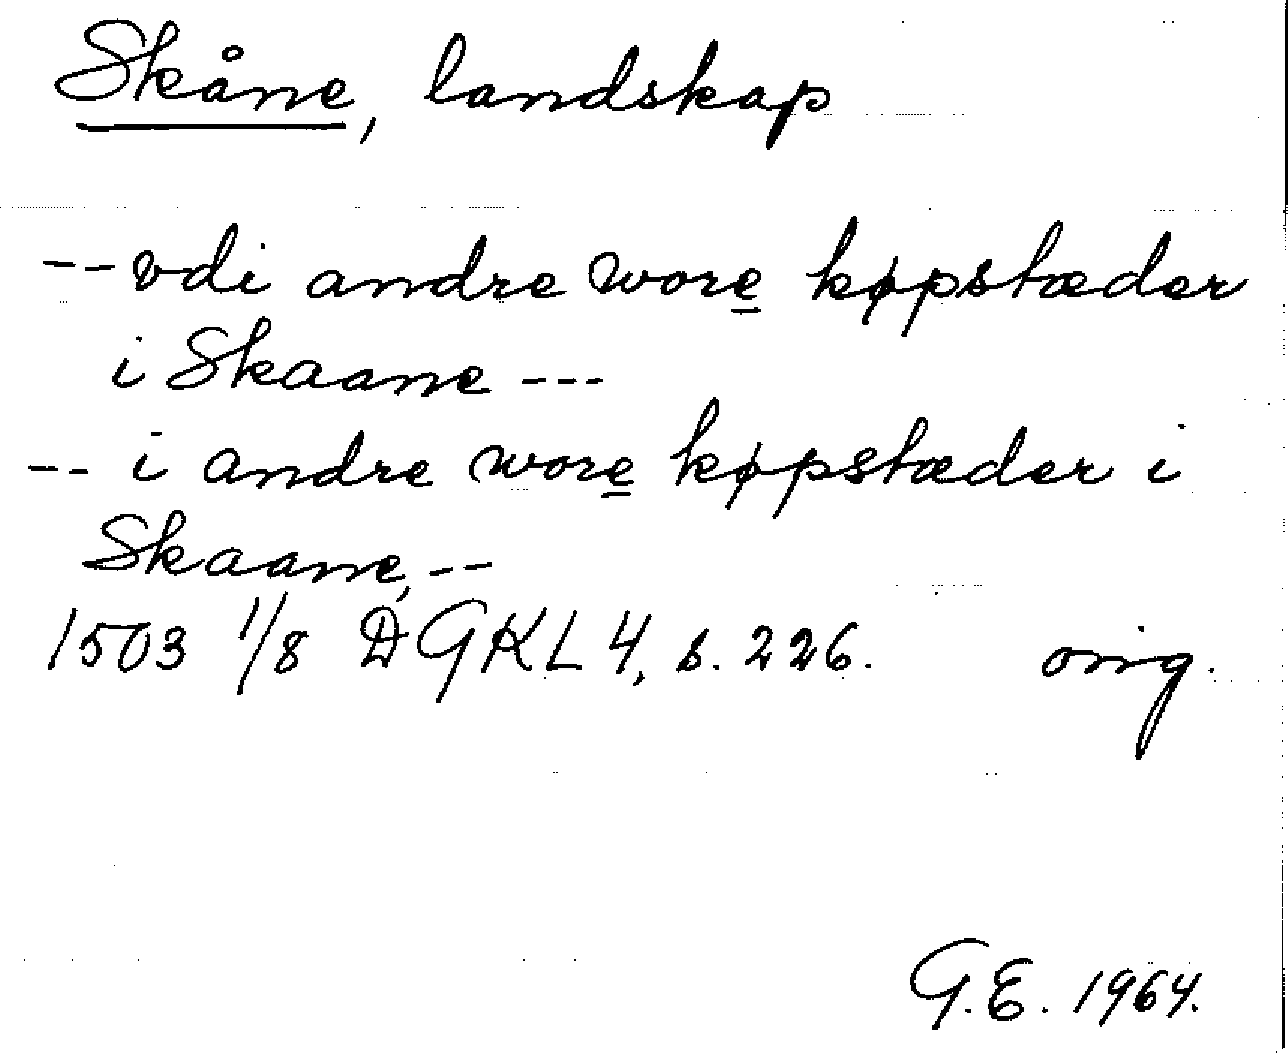 Skåne, landskap
-- vdi andre wore køpstæder
i Skaane ---
-- i andre wore køpstæder i
Skaane, --
1503 1/8 DGKL 4, s. 226. orig.
G.E. 1964.